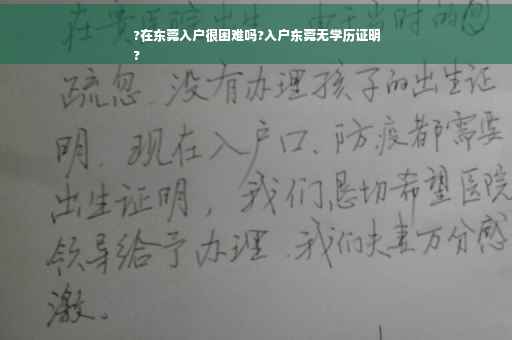 ?在东莞入户很困难吗?入户东莞无学历证明
?
在贵医院出生,由于当时的
疏忽.没有办理孩子的出生证
明.现在入户口、防疫都需要
出生证明,我们恳切希望医院
领导给予办理.我们夫妻万分感
激。